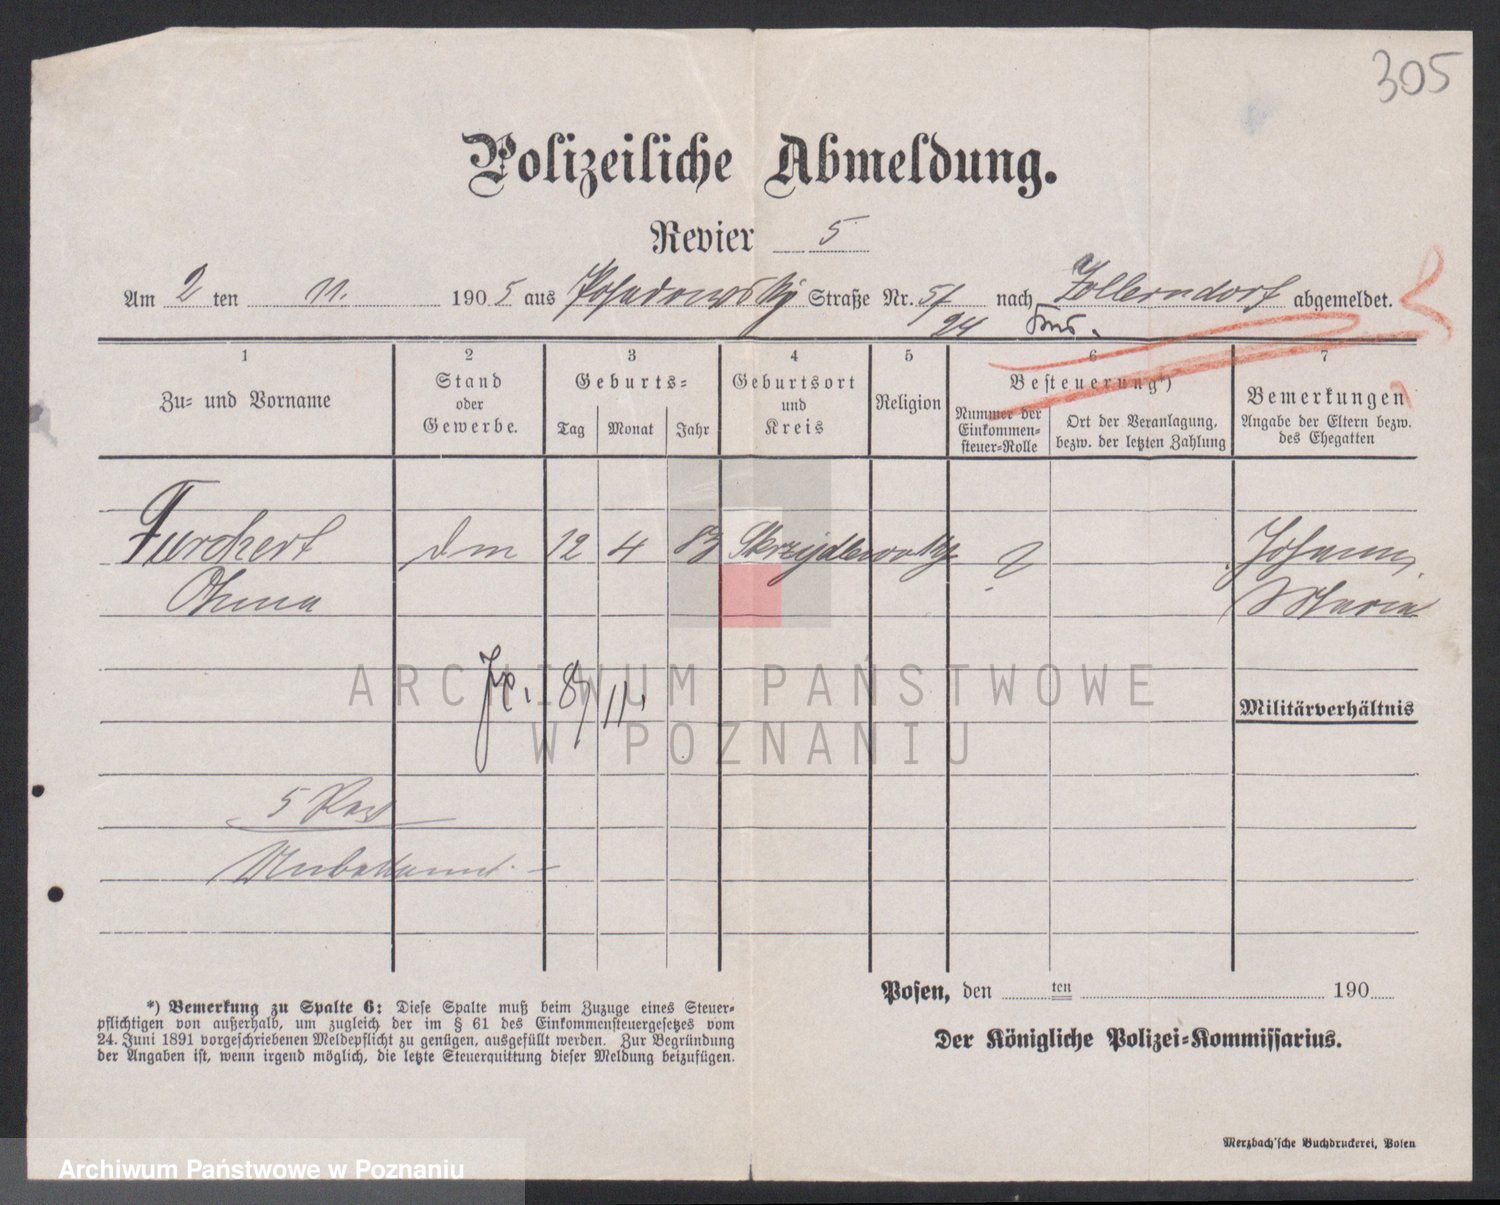 305
Polizeiliche Abmeldung.
Revier 5
Am 2 ten 11. 1905 aus Posadowsky Straße Nr. 5/ nach Zollerndorf abgemeldet.
24
1 2 3 4 5 6 7
Zu= und Vorname
Stand oder Gewerbe.
Geburts=
Tag Monat Jahr
Geburtsort und Kreis
Religion
Besteuerung*)
Nummer der Einkommen=steuer=Rolle
Ort der Veranlagung, bezw. der letzten Zahlung
Bemerkungen
Angabe der Eltern bezw. des Ehegatten
Furchert 12 4 83 ? Johann
Maria
8/11.
Militärverhältnis
5 Rev
Unbekannt. –
*) Bemerkung zu Spalte 6: Diese Spalte muß beim Zuzuge eines Steuer=
pflichtigen von außerhalb, um zugleich der im § 61 des Einkommensteuergesetzes vom
24. Juni 1891 vorgeschriebenen Meldepflicht zu genügen, ausgefüllt werden. Zur Begründung
der Angaben ist, wenn irgend möglich, die letzte Steuerquittung dieser Meldung beizufügen.
Posen, den ten 190
Der Königliche Polizei=Kommissarius.
Merzbach'sche Buchdruckerei, Posen
ARCHIWUM PAŃSTWOWE
W POZNANIU
Archiwum Państwowe w Poznaniu